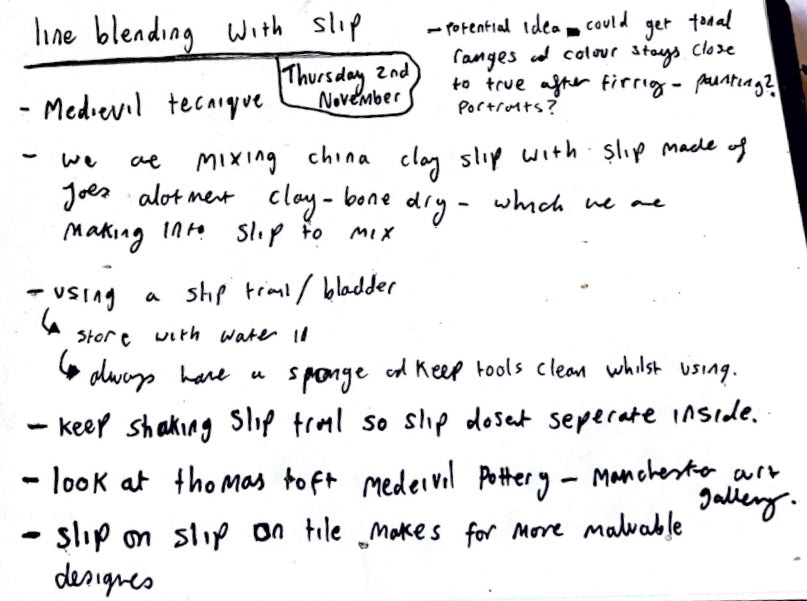 line blending with slip
Thursday 2nd
November
- potential idea - could get tonal
ranges nd colour stays close
to true after firrig - painting?
Portraits?
- Medievil tecnique
- we ae mixing china clay slip with slip made of
Joes alotment clay - bone dry - which we ae
making into slip to mix
- using a slip trail / bladder
↳ store with water in
↳ always have a sponge nd keep tools clean whilst using.
- keep shaking slip trail so slip dosent seperate inside.
- look at thomas toft medeivil Pottery - Manchester art
gallery.
- slip on slip on tile makes for more maluable
designes